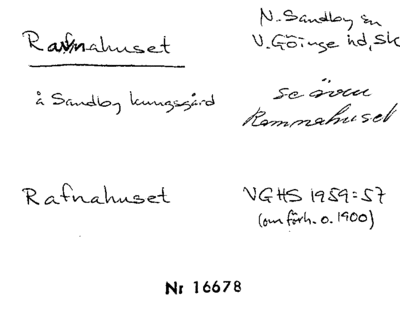 Rafnahuset
N. Sandby sn
V. Göinge hd, Sk
å Sandby kungsgård
se även
Ramnahuset
Rafnahuset
VGHS 1959:57
(om förh. o. 1900)
Nr 16678